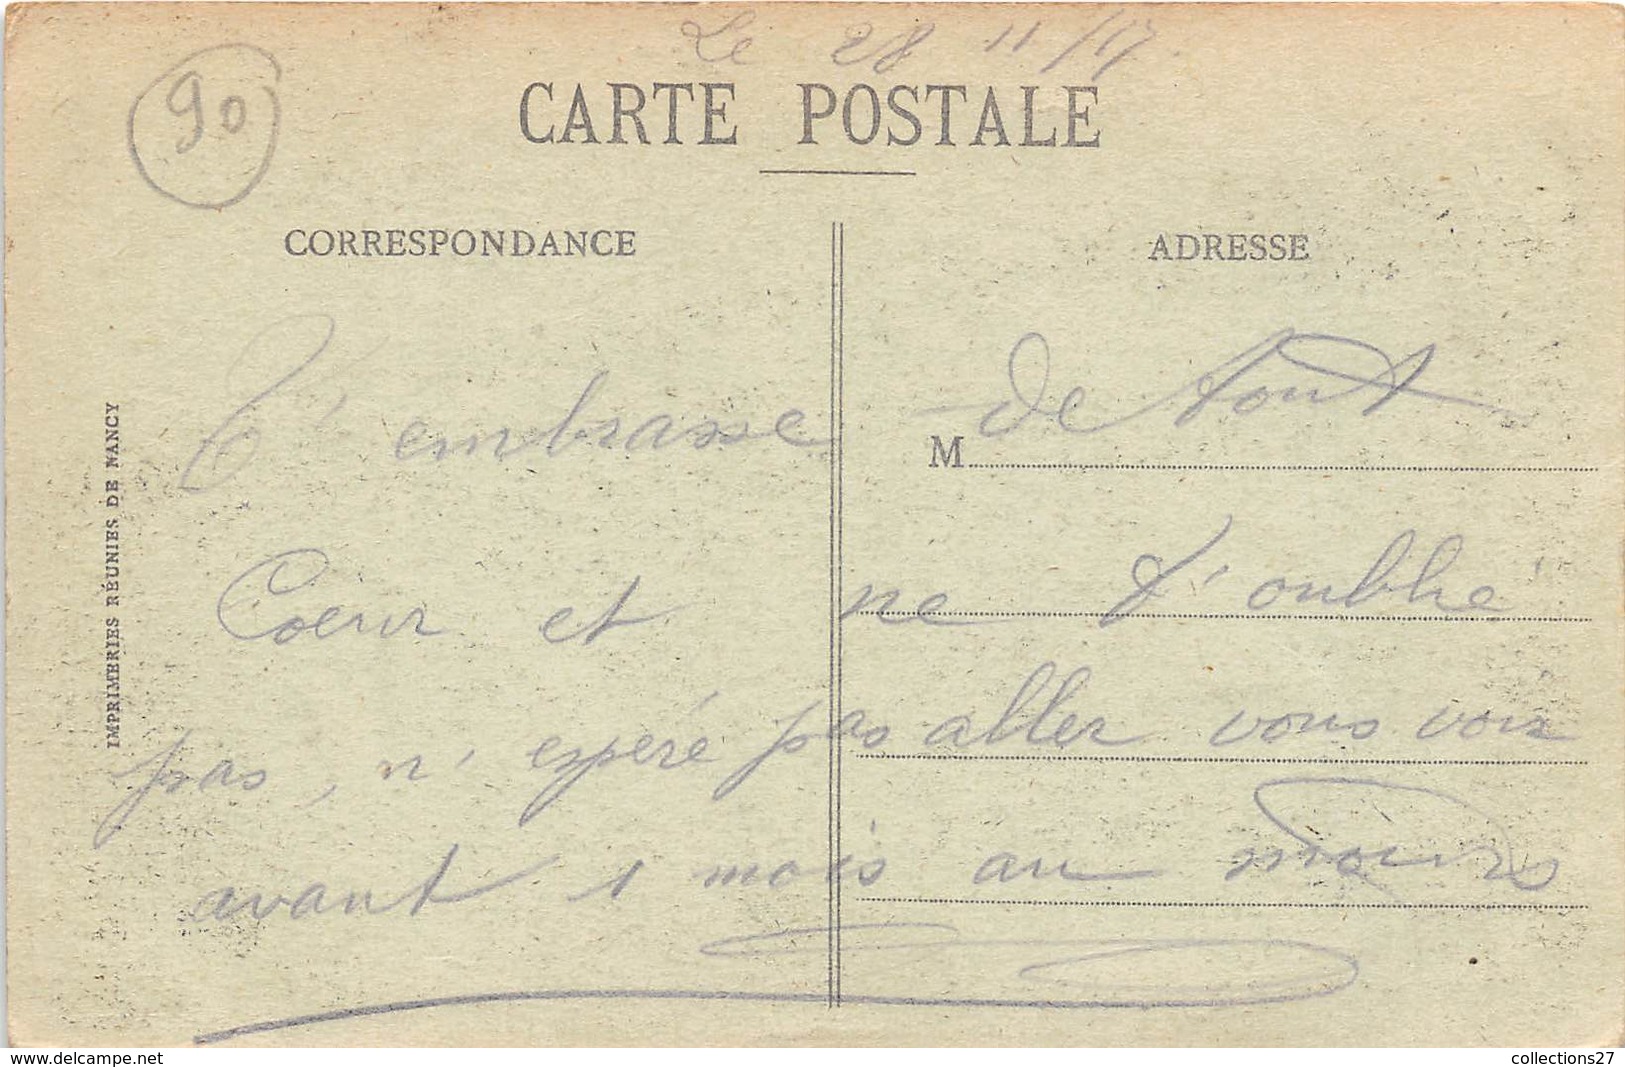 Le 28 11/17.
90
CARTE POSTALE
CORRESPONDANCE
ADRESSE
IMPRIMERIES RÉUNIES DE NANCY
M
T'embrasse de tout
Coeur et ne t'oublié
pas, n'espéré pas aller vous voir
avant 1 mois au moins
collections27
delcampe.net